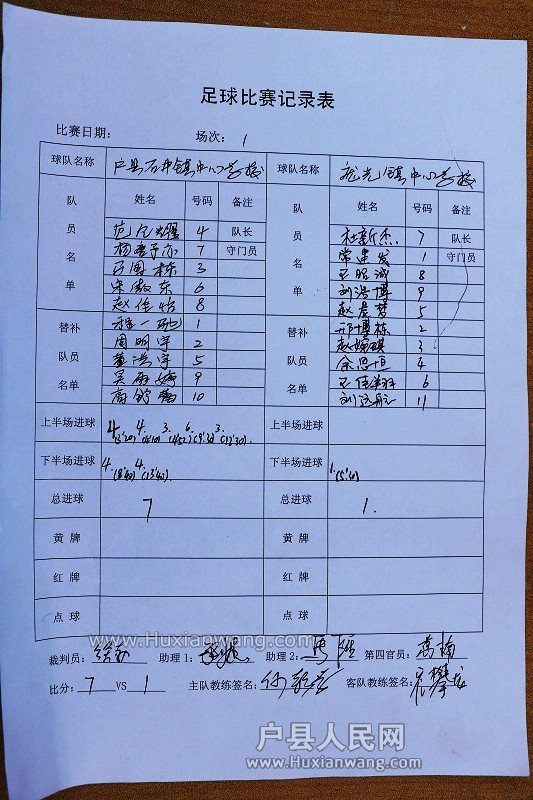 足球比赛记录表
比赛日期: 场次: 1
球队名称 户县石井镇中心学校 球队名称 庞光镇中心学校
队员名单 姓名 号码 备注 队员名单 姓名 号码 备注
4 队长 杜新杰 7 队长
7 守门员 常建发 1 守门员
3 王昭诚 8
宋 东 6 刘浩博 9
赵佳怡 8 赵彦梦 5
替补队员名单 程一 1 替补队员名单 邢博栋 2
周明宇 2 赵 3
董浩宇 5 余思恒 4
吴雨婷 9 王佳 6
高 10 刘远航 11
上半场进球 4. 4. 3. 6. 3. 上半场进球
(12'30).
下半场进球 4. 4. 下半场进球 1.
(13'40). (5'40)
总进球 7 总进球 1.
黄牌 黄牌
红牌 红牌
点球 点球
www.Huxianwang.com www.Huxianwang.com
裁判员: 助理1: 助理2: 第四官员: 高楠
比分: 7 VS 1 主队教练签名: 客队教练签名:
户县人民网
www.Huxianwang.com